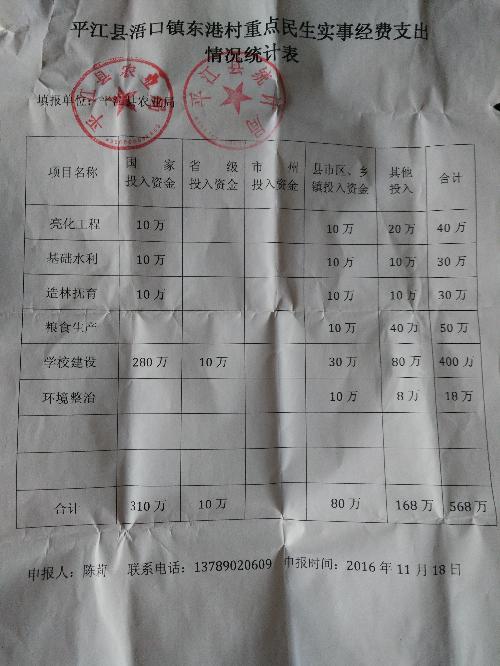 平江县浯口镇东港村重点民生实事经费支出
情况统计表
填报单位：平江县农业局
项目名称 国家投入资金 省级投入资金 市州投入资金 县市区、乡镇投入资金 其他投入 合计
亮化工程 10万 10万 20万 40万
基础水利 10万 10万 10万 30万
造林抚育 10万 10万 10万 30万
粮食生产 10万 40万 50万
学校建设 280万 10万 30万 80万 400万
环境整治 10万 8万 18万
合计 310万 10万 80万 168万 568万
申报人：陈 联系电话：13789020609 申报时间：2016年11月18日
平江县农业局
平江县统计局